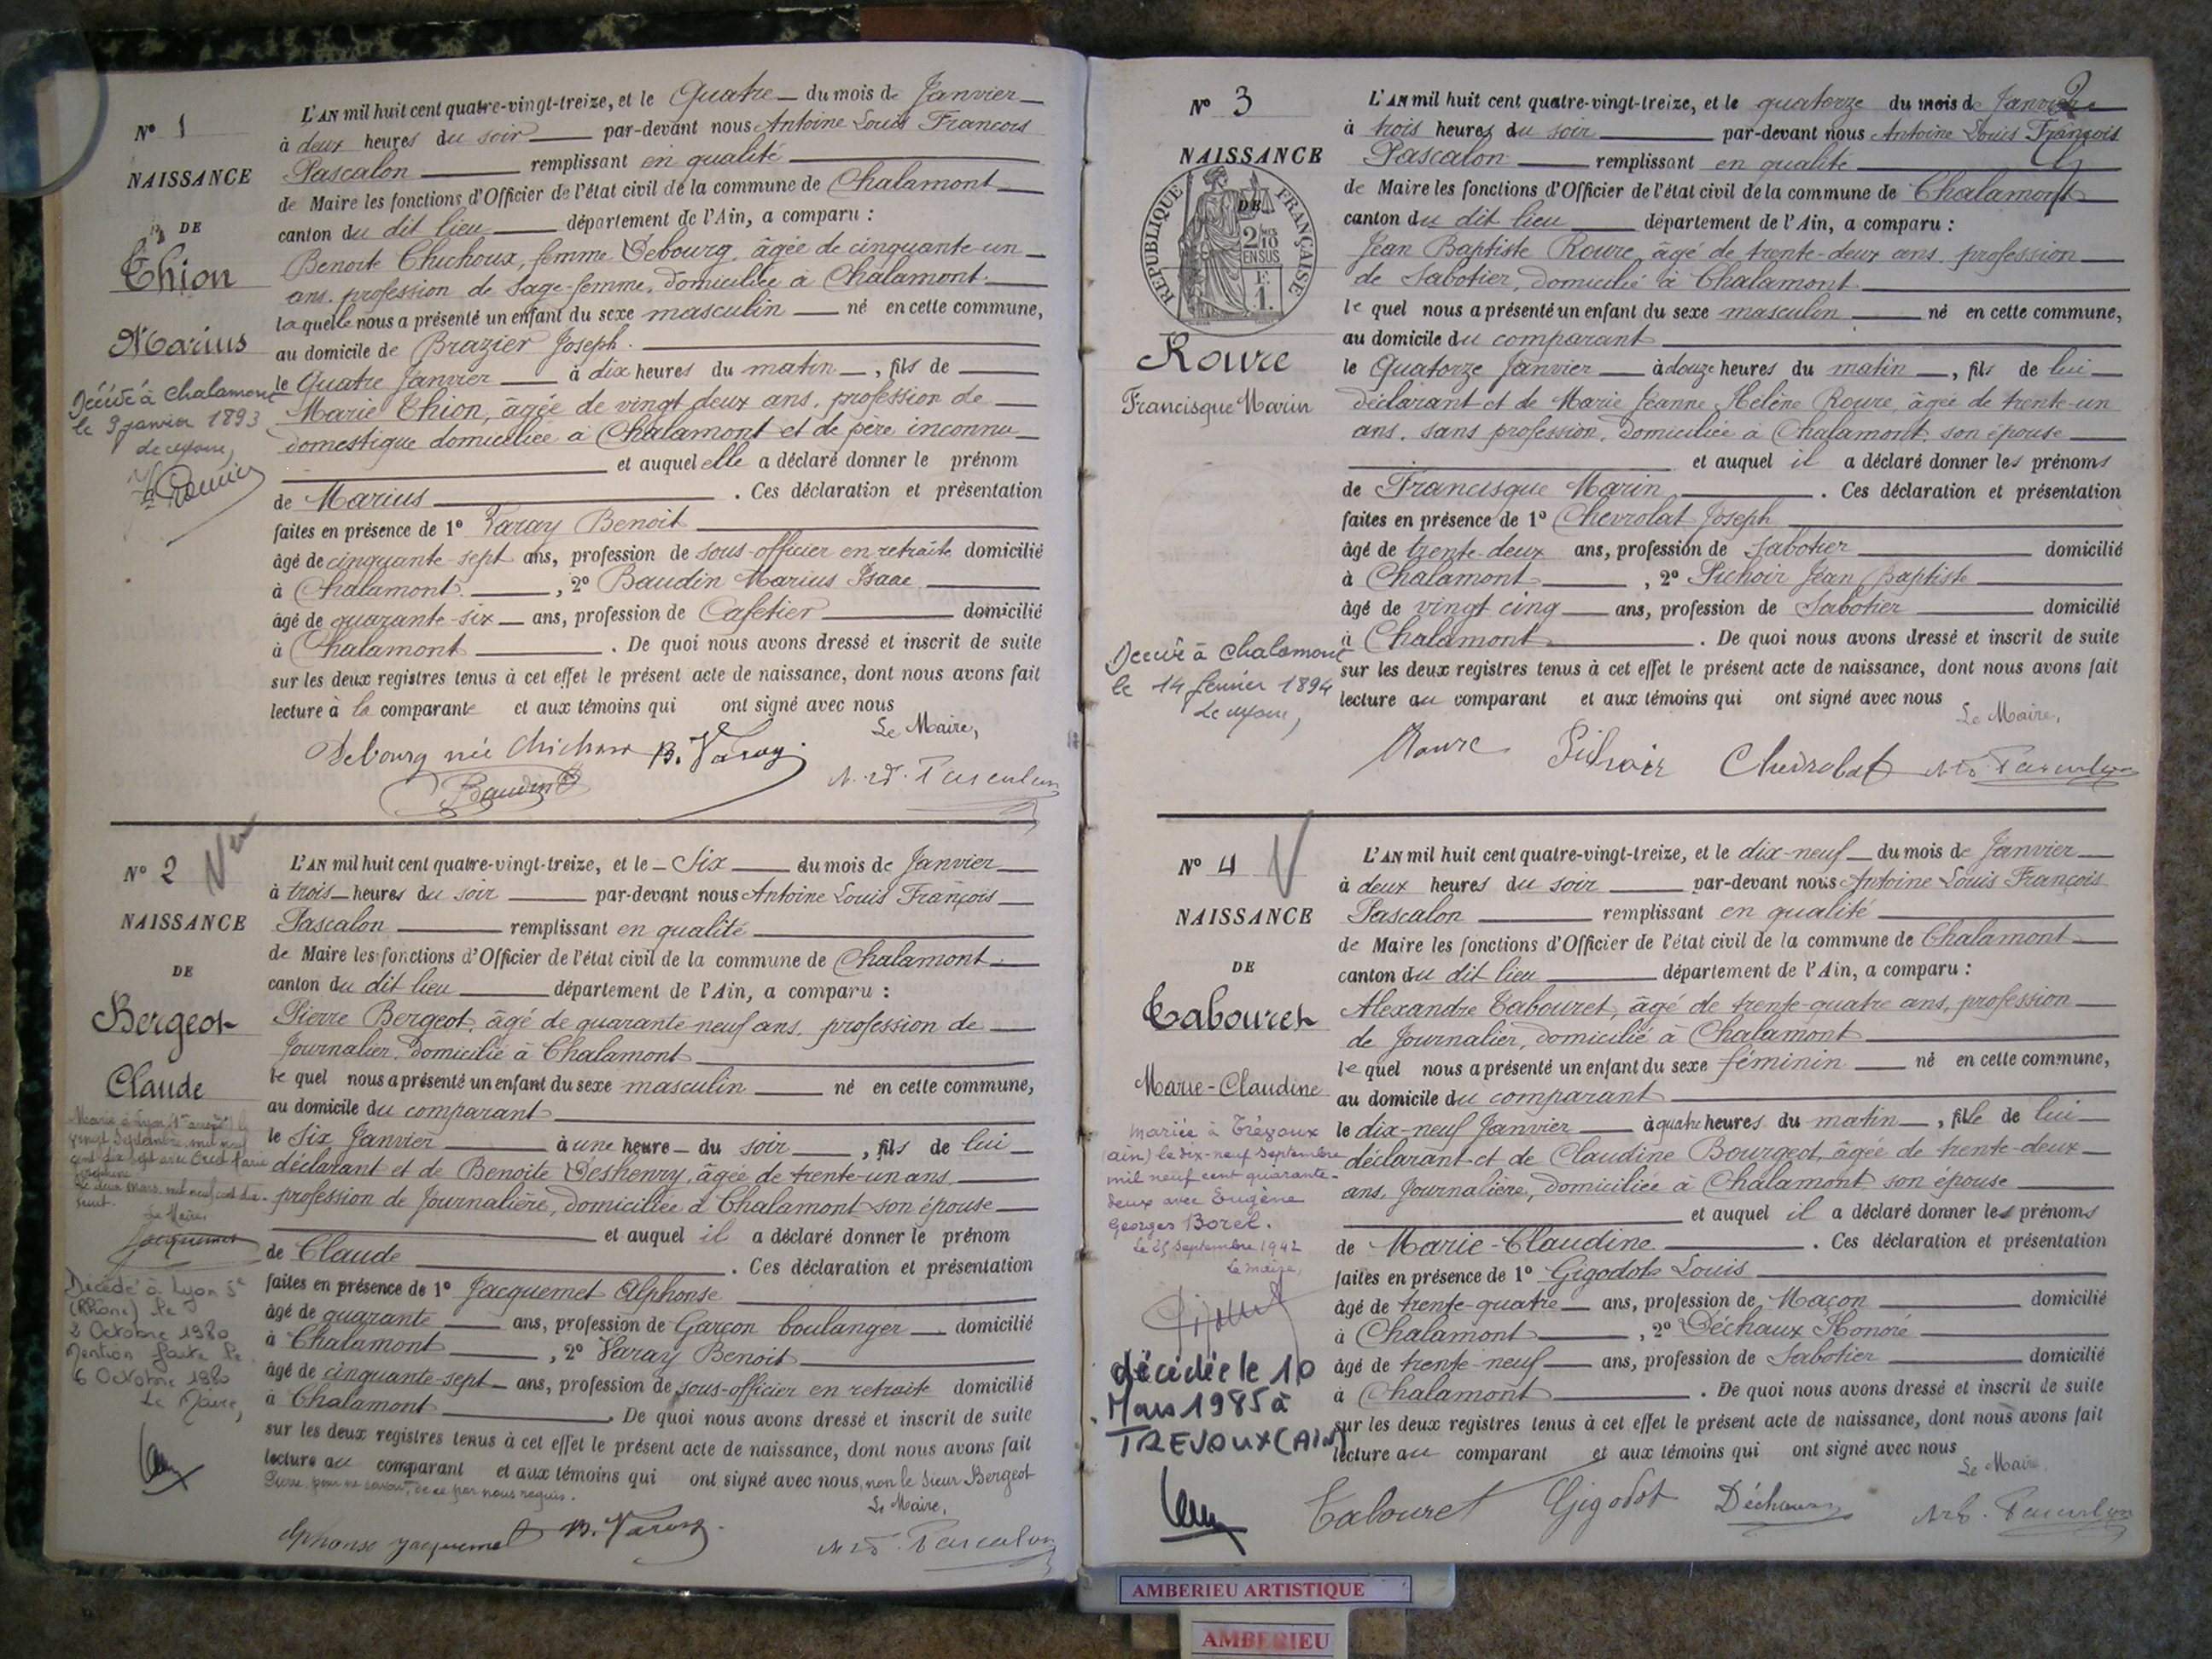 N° 1
NAISSANCE
DE
Thion
Marius
Décédé à Chalamont
le 9 janvier 1893
Le Maire,
L'AN mil huit cent quatre-vingt-treize, et le Quatre du mois de Janvier
à deux heures du soir par-devant nous Antoine Louis François
Pascalon remplissant en qualité
de Maire les fonctions d'Officier de l'état civil de la commune de Chalamont
canton du dit lieu département de l'Ain, a comparu :
Benoite Chichoux, femme Debourg, âgée de cinquante-un
ans, profession de Sage-femme, domiciliée à Chalamont
laquelle nous a présenté un enfant du sexe masculin né en cette commune,
au domicile de Brazier Joseph.
le Quatre Janvier à dix heures du matin, fils de
Marie Thion, âgée de vingt deux ans, profession de
domestique domiciliée à Chalamont et de père inconnu
et auquel elle a déclaré donner le prénom
de Marius. Ces déclaration et présentation
faites en présence de 1° Varay Benoit
âgé de cinquante-sept ans, profession de sous-officier en retraite domicilié
à Chalamont, 2° Baudin Marius Isaac
âgé de quarante-six ans, profession de Cafetier domicilié
à Chalamont. De quoi nous avons dressé et inscrit de suite
sur les deux registres tenus à cet effet le présent acte de naissance, dont nous avons fait
lecture à la comparante et aux témoins qui ont signé avec nous
Le Maire,
Debourg née Chichoux B. Varay
Baudin Pascalon
N° 2
NAISSANCE
DE
Bergeot
Claude
Marié à Lyon
vingt Septembre mil neuf
cent dix sept avec
Le Maire,
Jacquemet
Décédé à Lyon 5e
(Rhône) le
2 Octobre 1980
Mention faite le
6 Octobre 1980
Le Maire,
L'AN mil huit cent quatre-vingt-treize, et le Six du mois de Janvier
à trois heures du soir par-devant nous Antoine Louis François
Pascalon remplissant en qualité
de Maire les fonctions d'Officier de l'état civil de la commune de Chalamont
canton du dit lieu département de l'Ain, a comparu :
Pierre Bergeot, âgé de quarante-neuf ans, profession de
Journalier, domicilié à Chalamont
le quel nous a présenté un enfant du sexe masculin né en cette commune,
au domicile du comparant
le Six Janvier à une heure du soir, fils de lui
déclarant et de Benoite Deshenry, âgée de trente-un ans,
profession de Journalière, domiciliée à Chalamont son épouse
et auquel il a déclaré donner le prénom
de Claude. Ces déclaration et présentation
faites en présence de 1° Jacquemet Alphonse
âgé de quarante ans, profession de Garçon boulanger domicilié
à Chalamont, 2° Varay Benoit
âgé de cinquante-sept ans, profession de sous-officier en retraite domicilié
à Chalamont. De quoi nous avons dressé et inscrit de suite
sur les deux registres tenus à cet effet le présent acte de naissance, dont nous avons fait
lecture au comparant et aux témoins qui ont signé avec nous, non le sieur Bergeot
Pierre, pour ne savoir, de ce par nous requis.
Le Maire,
Alphonse Jacquemet B. Varay Pascalon
2
N° 3
NAISSANCE
DE
REPUBLIQUE FRANÇAISE
2/10
EN SUS
1 F.
Roure
Francisque Marin
Décédé à Chalamont
le 14 février 1894
Le Maire,
L'AN mil huit cent quatre-vingt-treize, et le quatorze du mois de Janvier
à trois heures du soir par-devant nous Antoine Louis François
Pascalon remplissant en qualité
de Maire les fonctions d'Officier de l'état civil de la commune de Chalamont
canton du dit lieu département de l'Ain, a comparu :
Jean Baptiste Roure, âgé de trente-deux ans, profession
de Sabotier, domicilié à Chalamont
le quel nous a présenté un enfant du sexe masculin né en cette commune,
au domicile du comparant
le Quatorze Janvier à douze heures du matin, fils de lui
déclarant et de Marie Jeanne Hélène Roure, âgée de trente-un
ans, sans profession, domiciliée à Chalamont, son épouse
et auquel il a déclaré donner les prénoms
de Francisque Marin. Ces déclaration et présentation
faites en présence de 1° Chevrolat Joseph
âgé de trente-deux ans, profession de Sabotier domicilié
à Chalamont, 2° Pichoir Jean Baptiste
âgé de vingt cinq ans, profession de Sabotier domicilié
à Chalamont. De quoi nous avons dressé et inscrit de suite
sur les deux registres tenus à cet effet le présent acte de naissance, dont nous avons fait
lecture au comparant et aux témoins qui ont signé avec nous
Le Maire,
Roure Pichoir Chevrolat Pascalon
N° 4
NAISSANCE
DE
Tabouret
Marie-Claudine
mariée à Trévoux
(ain) le dix-neuf Septembre
mil neuf cent quarante-
deux avec Eugène
Georges Borel.
Le 25 Septembre 1942
Le maire,
décédée le 10
Mars 1985 à
TREVOUX (AIN)
L'AN mil huit cent quatre-vingt-treize, et le dix-neuf du mois de Janvier
à deux heures du soir par-devant nous Antoine Louis François
Pascalon remplissant en qualité
de Maire les fonctions d'Officier de l'état civil de la commune de Chalamont
canton du dit lieu département de l'Ain, a comparu :
Alexandre Tabouret, âgé de trente-quatre ans, profession
de Journalier, domicilié à Chalamont
le quel nous a présenté un enfant du sexe féminin né en cette commune,
au domicile du comparant
le dix-neuf Janvier à quatre heures du matin, fille de lui
déclarant et de Claudine Bourgeot, âgée de trente-deux
ans, Journalière, domiciliée à Chalamont son épouse
et auquel il a déclaré donner les prénoms
de Marie-Claudine. Ces déclaration et présentation
faites en présence de 1° Gigodot Louis
âgé de trente-quatre ans, profession de Maçon domicilié
à Chalamont, 2° Déchaux Honoré
âgé de trente-neuf ans, profession de Sabotier domicilié
à Chalamont. De quoi nous avons dressé et inscrit de suite
sur les deux registres tenus à cet effet le présent acte de naissance, dont nous avons fait
lecture au comparant et aux témoins qui ont signé avec nous
Le Maire
Tabouret Gigodot Déchaux Pascalon
AMBERIEU ARTISTIQUE
AMBERIEU